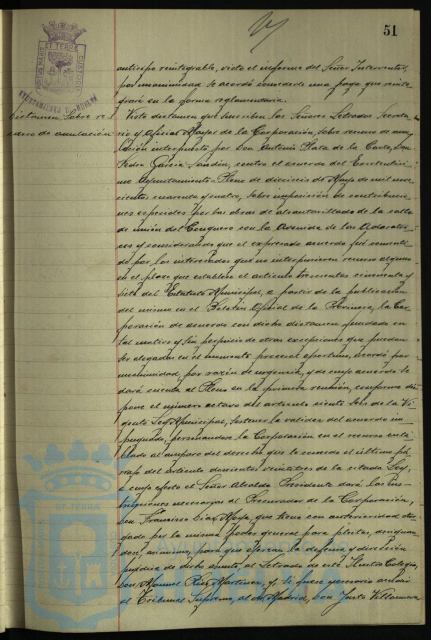 51
anticipo reintegrable, visto el informe del Señor Interventor,
por unanimidad se acordó concederle una paga que reinte-
grará en la forma reglamentaria.
Dictamen sobre re-
curso de anulación
Visto dictamen que suscriben los Señores Letrados, Secreta-
rio y Oficial Mayor de la Corporación, sobre recurso de anu-
lación interpuesto por Don Antonio Plata de la Corte, Don
Pedro García Jandón, contra el acuerdo del Excelentísi-
mo Ayuntamiento Pleno de dieciseis de Mayo de mil nove-
cientos cuarenta y cuatro, sobre imposición de contribucio-
nes especiales por las obras de alcantarillado de la calle
de unión del Conquero con la Avenida de los Adoratri-
ces y considerando que el expresado acuerdo fué consenti-
do por los interesados que no interpusieron recurso alguno
en el plazo que establece el artículo trescientos cincuenta y
siete del Estatuto Municipal, a partir de la publicación
del mismo en el Boletín Oficial de la Provincia, la Cor-
poración de acuerdo con dicho dictamen fundada en
tal motivo y sin perjuicio de otras excepciones que puedan
ser alegadas en el momento procesal oportuno, acordó por
unanimidad, por razón de urgencia, y de cuyo acuerdo se
dará cuenta al Pleno en la primera reunión, conforme dis-
pone el número octavo del artículo ciento dos de la Vi-
gente Ley Municipal, sostener la validez del acuerdo im-
pugnado, personandose la Corporación en el recurso enta-
blado al amparo del derecho que le concede el último pá-
rrafo del artículo doscientos veinticuatro de la citada Ley,
a cuyo efecto el Señor Alcalde Presidente dará las ins-
trucciones necesarias al Procurador de la Corporación,
Don Francisco Díaz Moya, que tiene con anterioridad otor-
gado por la misma Poder general para pleitos, designan-
dose, asimismo, para que ejerza la defensa y dirección
jurídica de dicho asunto, al Letrado de este Ilustre Colegio,
Don Manuel Ruiz Martínez, y, si fuere necesario acudir
al Tribunal Supremo, al de Madrid, Don Justo Villanueva